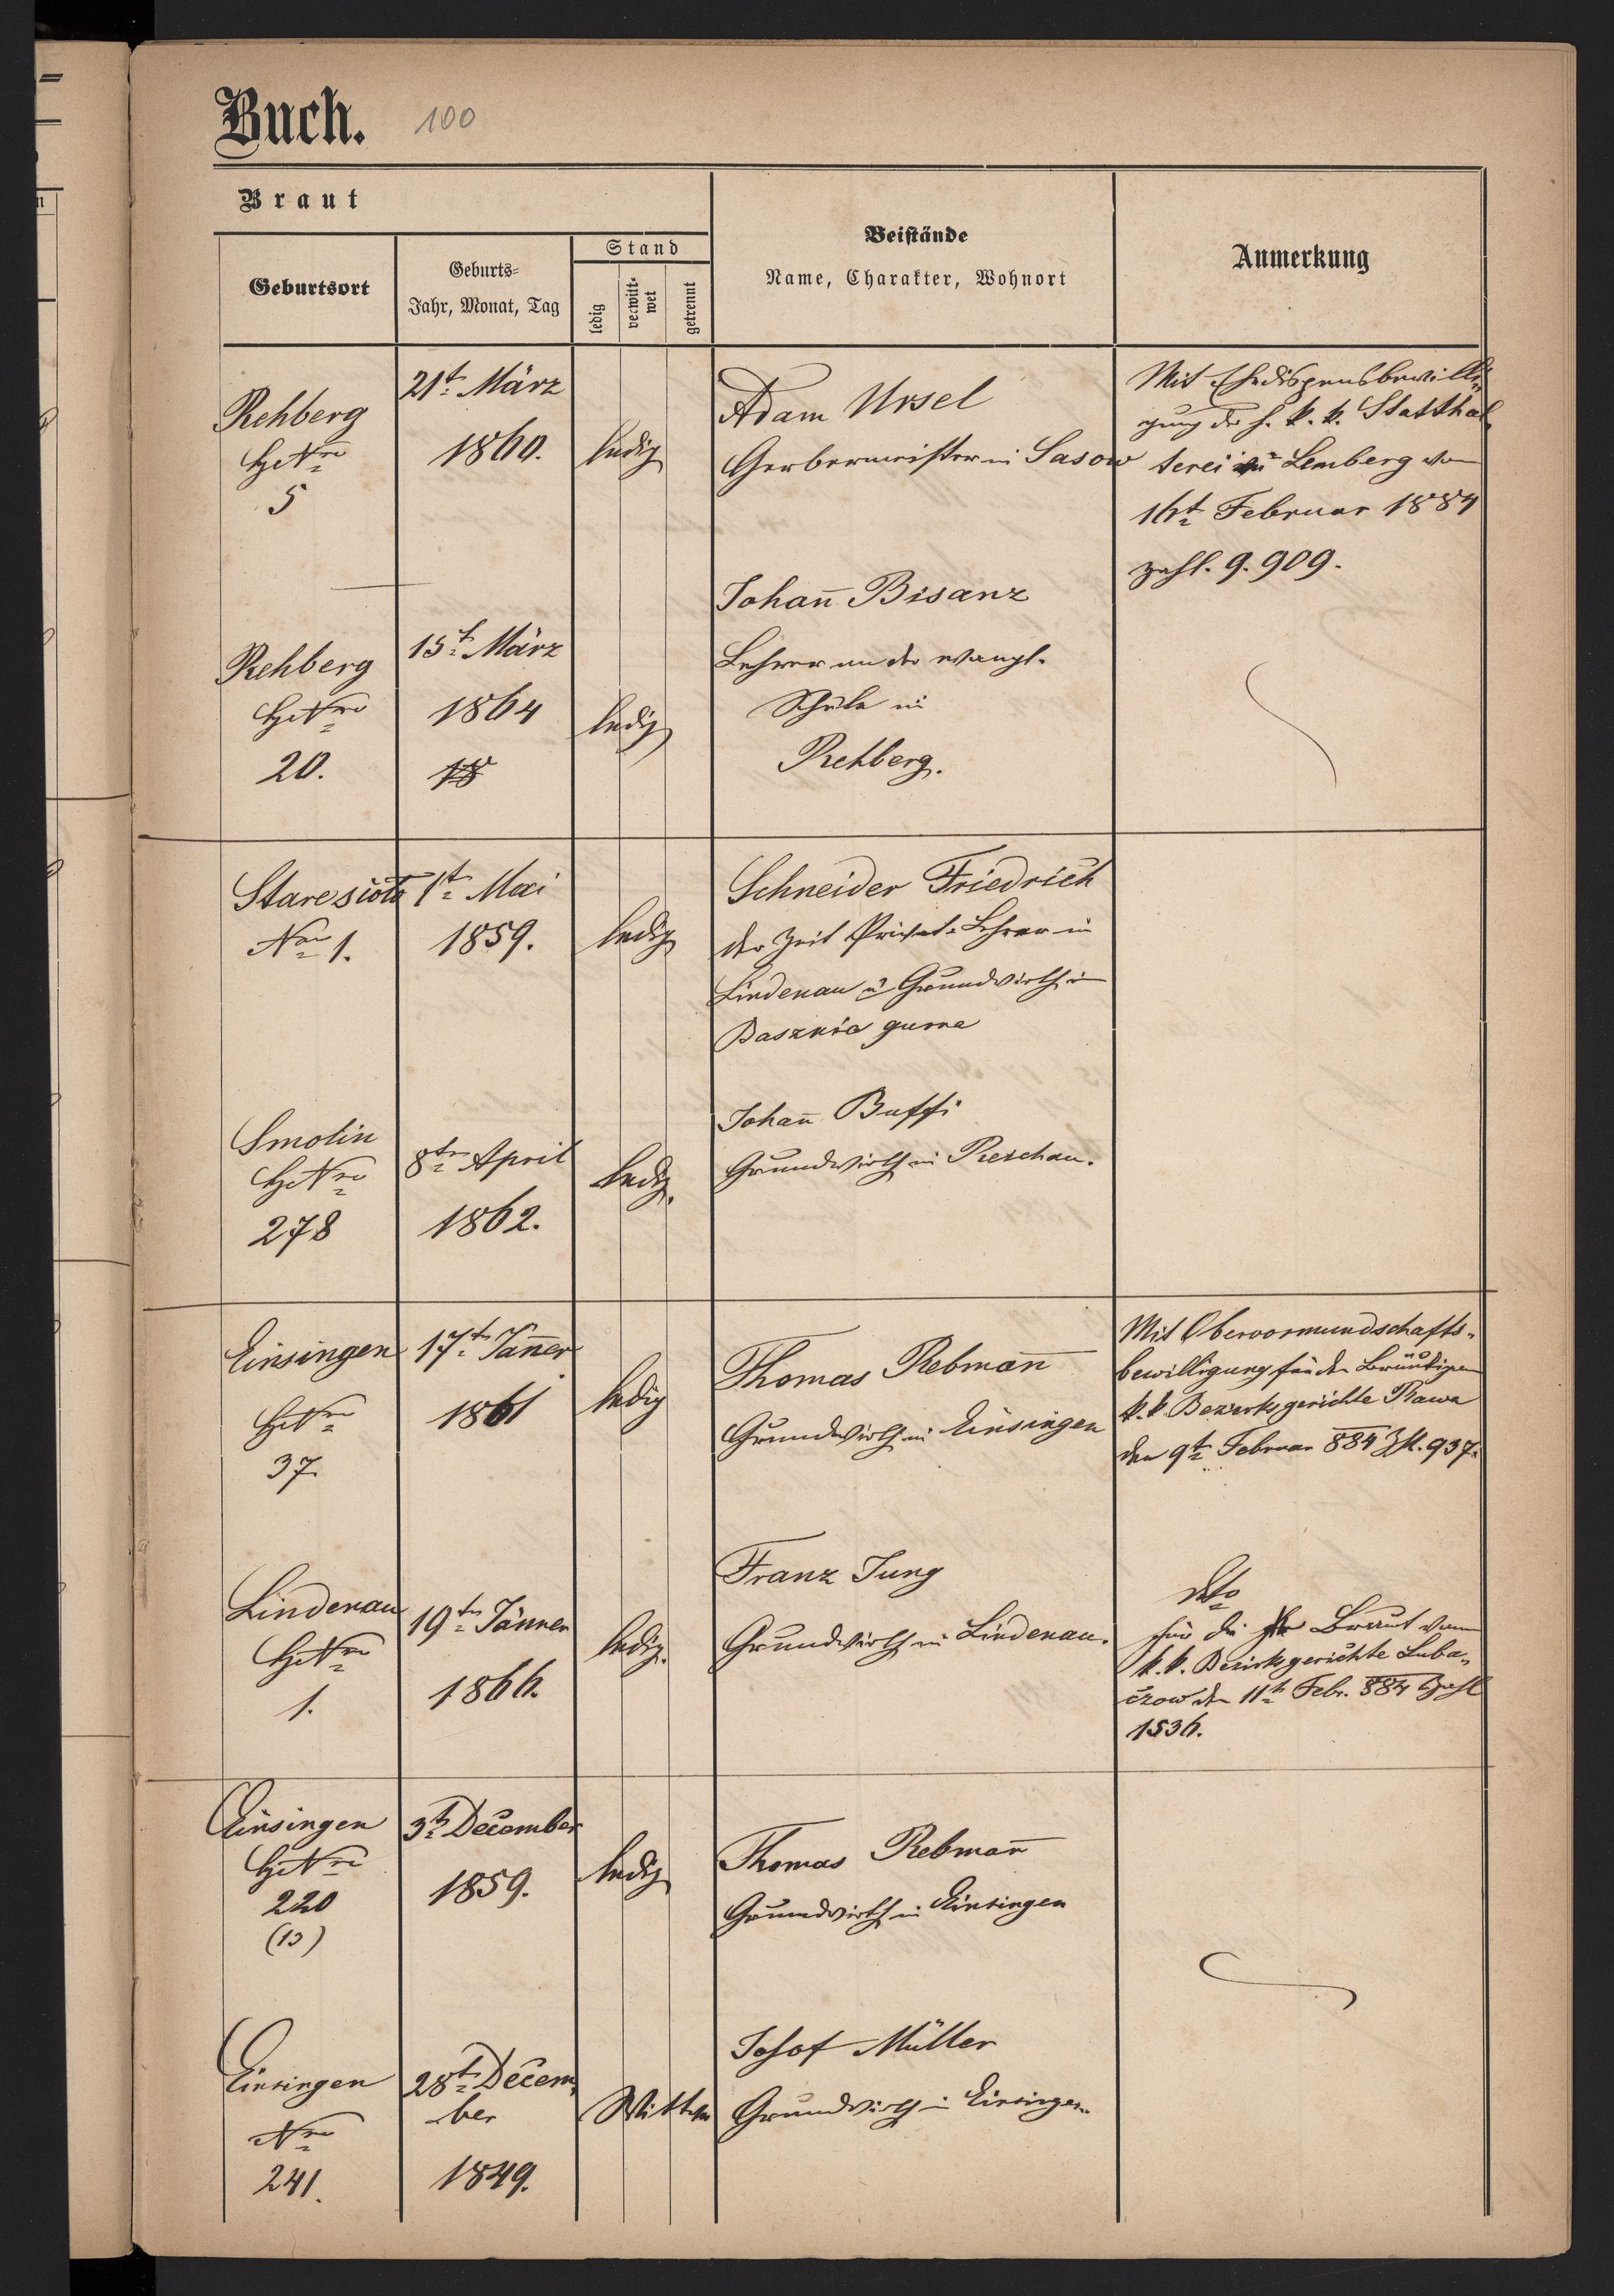 Buch. 100
Braut
Geburtsort
Geburts-
Jahr, Monat, Tag
Stand
ledig
verwitt-
wet
getrennt
Beistände
Name, Charakter, Wohnort
Anmerkung
Rehberg
HsNro
5
21t März
1860.
ledig
Adam Ursel
Gerbermeister in Sasow
Mit Ehedispensbewilli-
gung der h. k. k. Statthal-
terei zu Lemberg vom
16t Februar 1884
Zahl. 9.909.
Rehberg
HsNro
20.
15t März
1864
18
ledig
Johan̅ Bisanz
Lehrer an der evangl.
Schule in
Rehberg.
Staresioło
Nro 1.
1t Mai
1859.
ledig
Schneider Friedrich
der Zeit Privat-Lehrer in
Lindenau u Grundwirth in
Basznia gurna
Smolin
HsNro
278
8tn April
1862.
ledig.
Johan̅
Grundwirth in Reichau.
Einsingen
HsNro
37.
17t Jän̅er
1861
ledig
Thomas Rebman̅
Grundwirth in Einsingen
Mit Obervormundschafts-
bewilligung für den Bräutigam
k.k. Bezirksgerichte Rawa
den 9t Februar 884 Zl. 937.
Lindenau
HsNro
1.
19tn Jänner
1866.
ledig.
Franz Jung
Grundwirth in Lindenau.
dto
für die Braut vom
k.k. Bezirksgerichte Luba-
czow den 11t Febr. 884 Zahl
1536.
Einsingen
HsNro
220
(13)
3t December
1859.
ledig
Thomas Rebman̅
Grundwirth in Einsingen
Einsingen
Nro
241.
28t Decem-
ber
1849.
Wittwe
Josef Müller
Grundwirth in Einsingen.